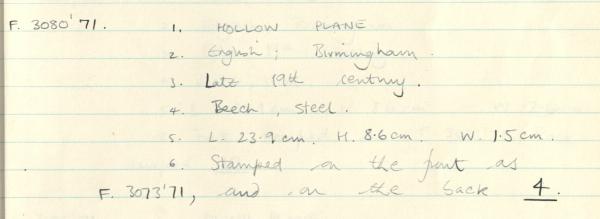 F. 3080'71. 1. HOLLOW PLANE
2. English; Birmingham.
3. Late 19th century.
4. Beech, Steel.
5. L. 23.9cm. H. 8.6cm. W. 1.5cm.
6. Stamped on the front as
F. 3073'71, and on the back 4.